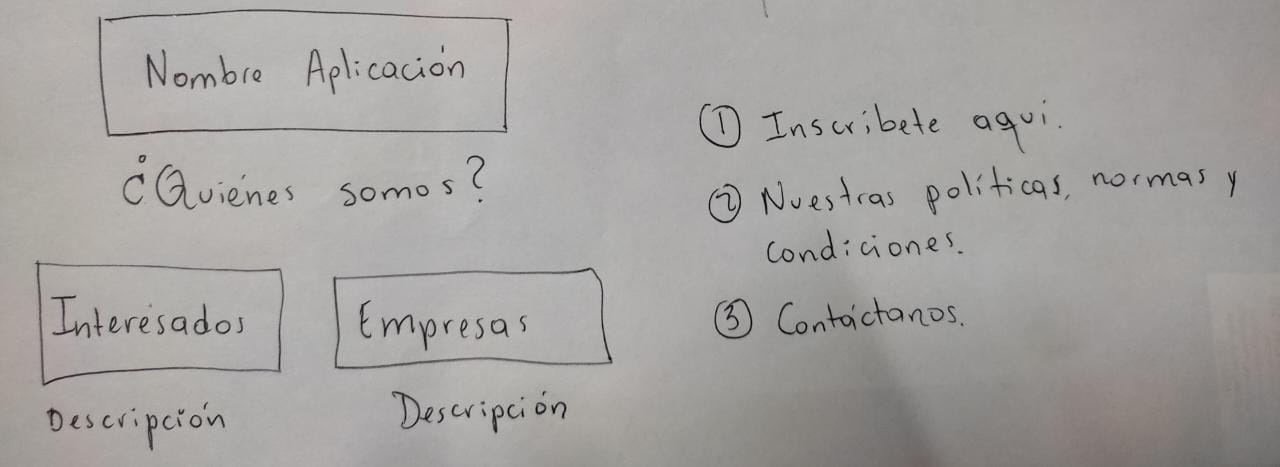 Nombre Aplicación
¿Quiénes somos?
Interesados
Empresas
Descripción
Descripción
① Inscríbete aquí.
② Nuestras políticas, normas y
condiciones.
③ Contáctanos.